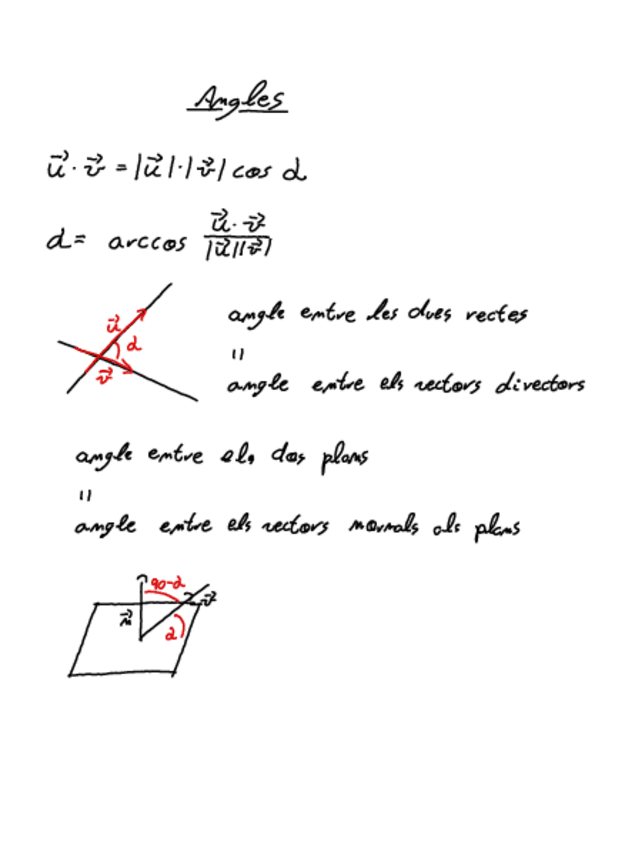 Angles
u⃗ · v⃗ = |u⃗| · |v⃗| cos α
α = arccos u⃗ · v⃗ / |u⃗||v⃗|
u⃗ α v⃗
angle entre les dues rectes
=
angle entre els vectors directors
angle entre els dos plans
=
angle entre els vectors normals als plans
90-α
n⃗ v⃗
α